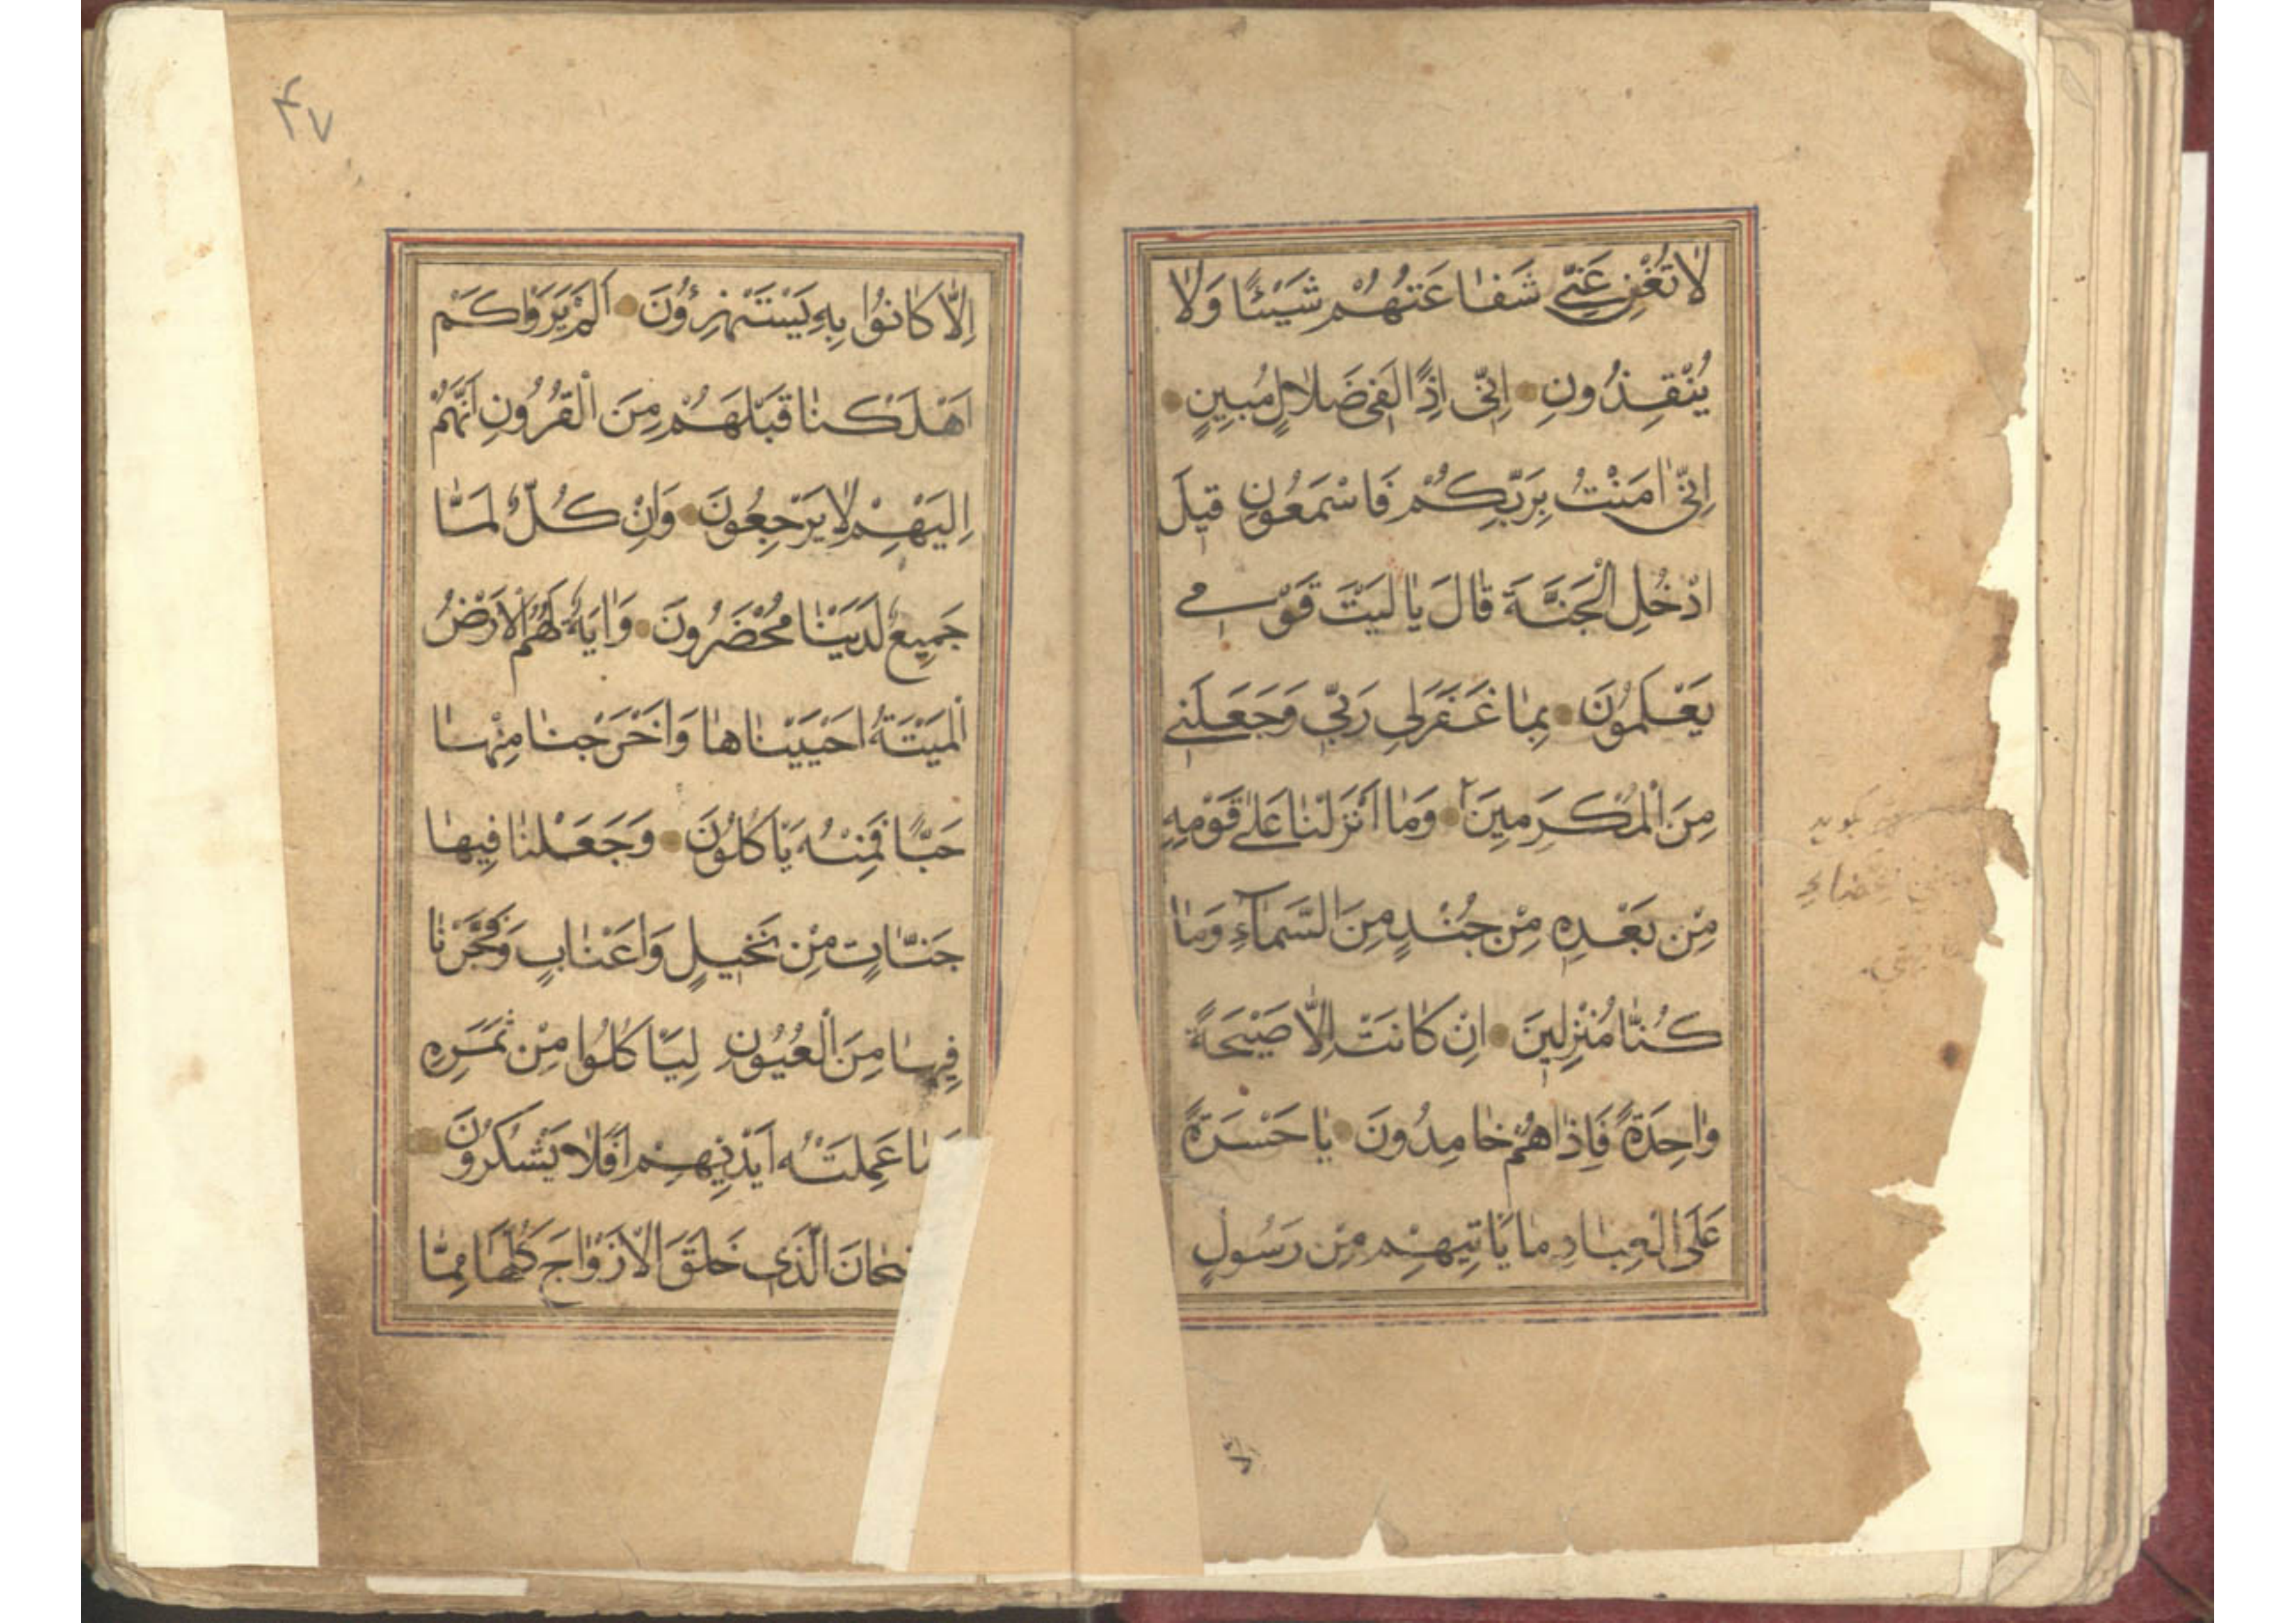 لَا تُغْنِ عَنِّي شَفَاعَتُهُمْ شَيْئًا وَلَا
يُنْقِذُونِ اِنِّى اِذًا لَفِى ضَلَالٍ مُبِينٍ
اِنِّى اٰمَنْتُ بِرَبِّكُمْ فَاسْمَعُونِ قِيلَ
ادْخُلِ الْجَنَّةَ قَالَ يَا لَيْتَ قَوْمِي
يَعْلَمُونَ بِمَا غَفَرَ لِى رَبِّى وَجَعَلَنِى
مِنَ الْمُكْرَمِينَ وَمَا اَنْزَلْنَا عَلٰى قَوْمِهِ
مِنْ بَعْدِهِ مِنْ جُنْدٍ مِنَ السَّمَآءِ وَمَا
كُنَّا مُنْزِلِينَ اِنْ كَانَتْ اِلَّا صَيْحَةً
وَاحِدَةً فَاِذَا هُمْ خَامِدُونَ يَا حَسْرَةً
عَلَى الْعِبَادِ مَا يَاْتِيهِمْ مِنْ رَسُولٍ
اِلَّا
۴۷
اِلَّا كَانُوا بِهِ يَسْتَهْزِؤُنَ اَلَمْ يَرَوْا كَمْ
اَهْلَكْنَا قَبْلَهُمْ مِنَ الْقُرُونِ اَنَّهُمْ
اِلَيْهِمْ لَا يَرْجِعُونَ وَاِنْ كُلٌّ لَمَّا
جَمِيعٌ لَدَيْنَا مُحْضَرُونَ وَاٰيَةٌ لَهُمُ الْاَرْضُ
الْمَيْتَةُ اَحْيَيْنَاهَا وَاَخْرَجْنَا مِنْهَا
حَبًّا فَمِنْهُ يَاْكُلُونَ وَجَعَلْنَا فِيهَا
جَنَّاتٍ مِنْ نَخِيلٍ وَاَعْنَابٍ وَفَجَّرْنَا
فِيهَا مِنَ الْعُيُونِ لِيَاْكُلُوا مِنْ ثَمَرِهِ
وَمَا عَمِلَتْهُ اَيْدِيهِمْ اَفَلَا يَشْكُرُونَ
الَّذِى خَلَقَ الْاَزْوَاجَ كُلَّهَا مِمَّا